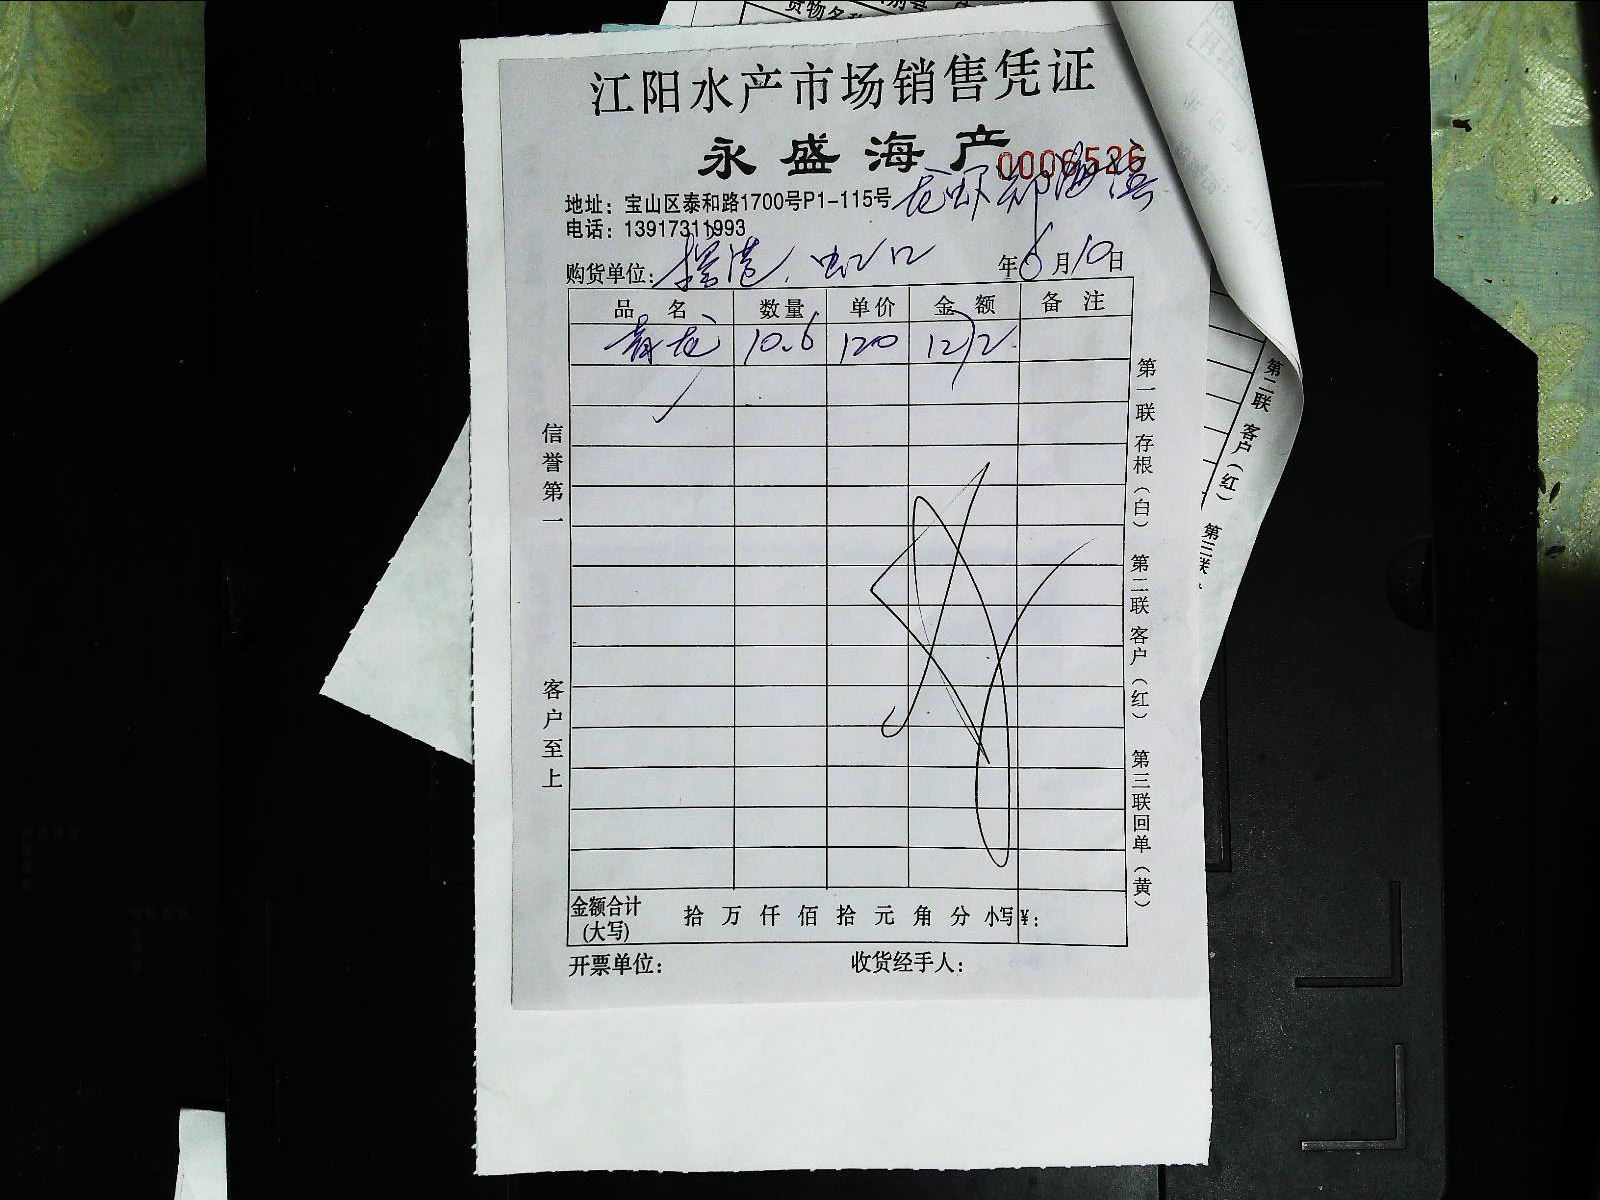 货物名称
江阳水产市场销售凭证
永盛海产
0006526
地址：宝山区泰和路1700号P1-115号
龙虾
电话：13917311993
购货单位：
虹口
年6月10日
品 名 数量 单价 金 额 备 注
青龙 10.6 120 1272
信誉第一 客户至上
第一联 存根（白） 第二联 客户（红） 第三联 回单（黄）
第二联 客户（红） 第三联
金额合计(大写) 拾 万 仟 佰 拾 元 角 分 小写¥：
开票单位： 收货经手人：